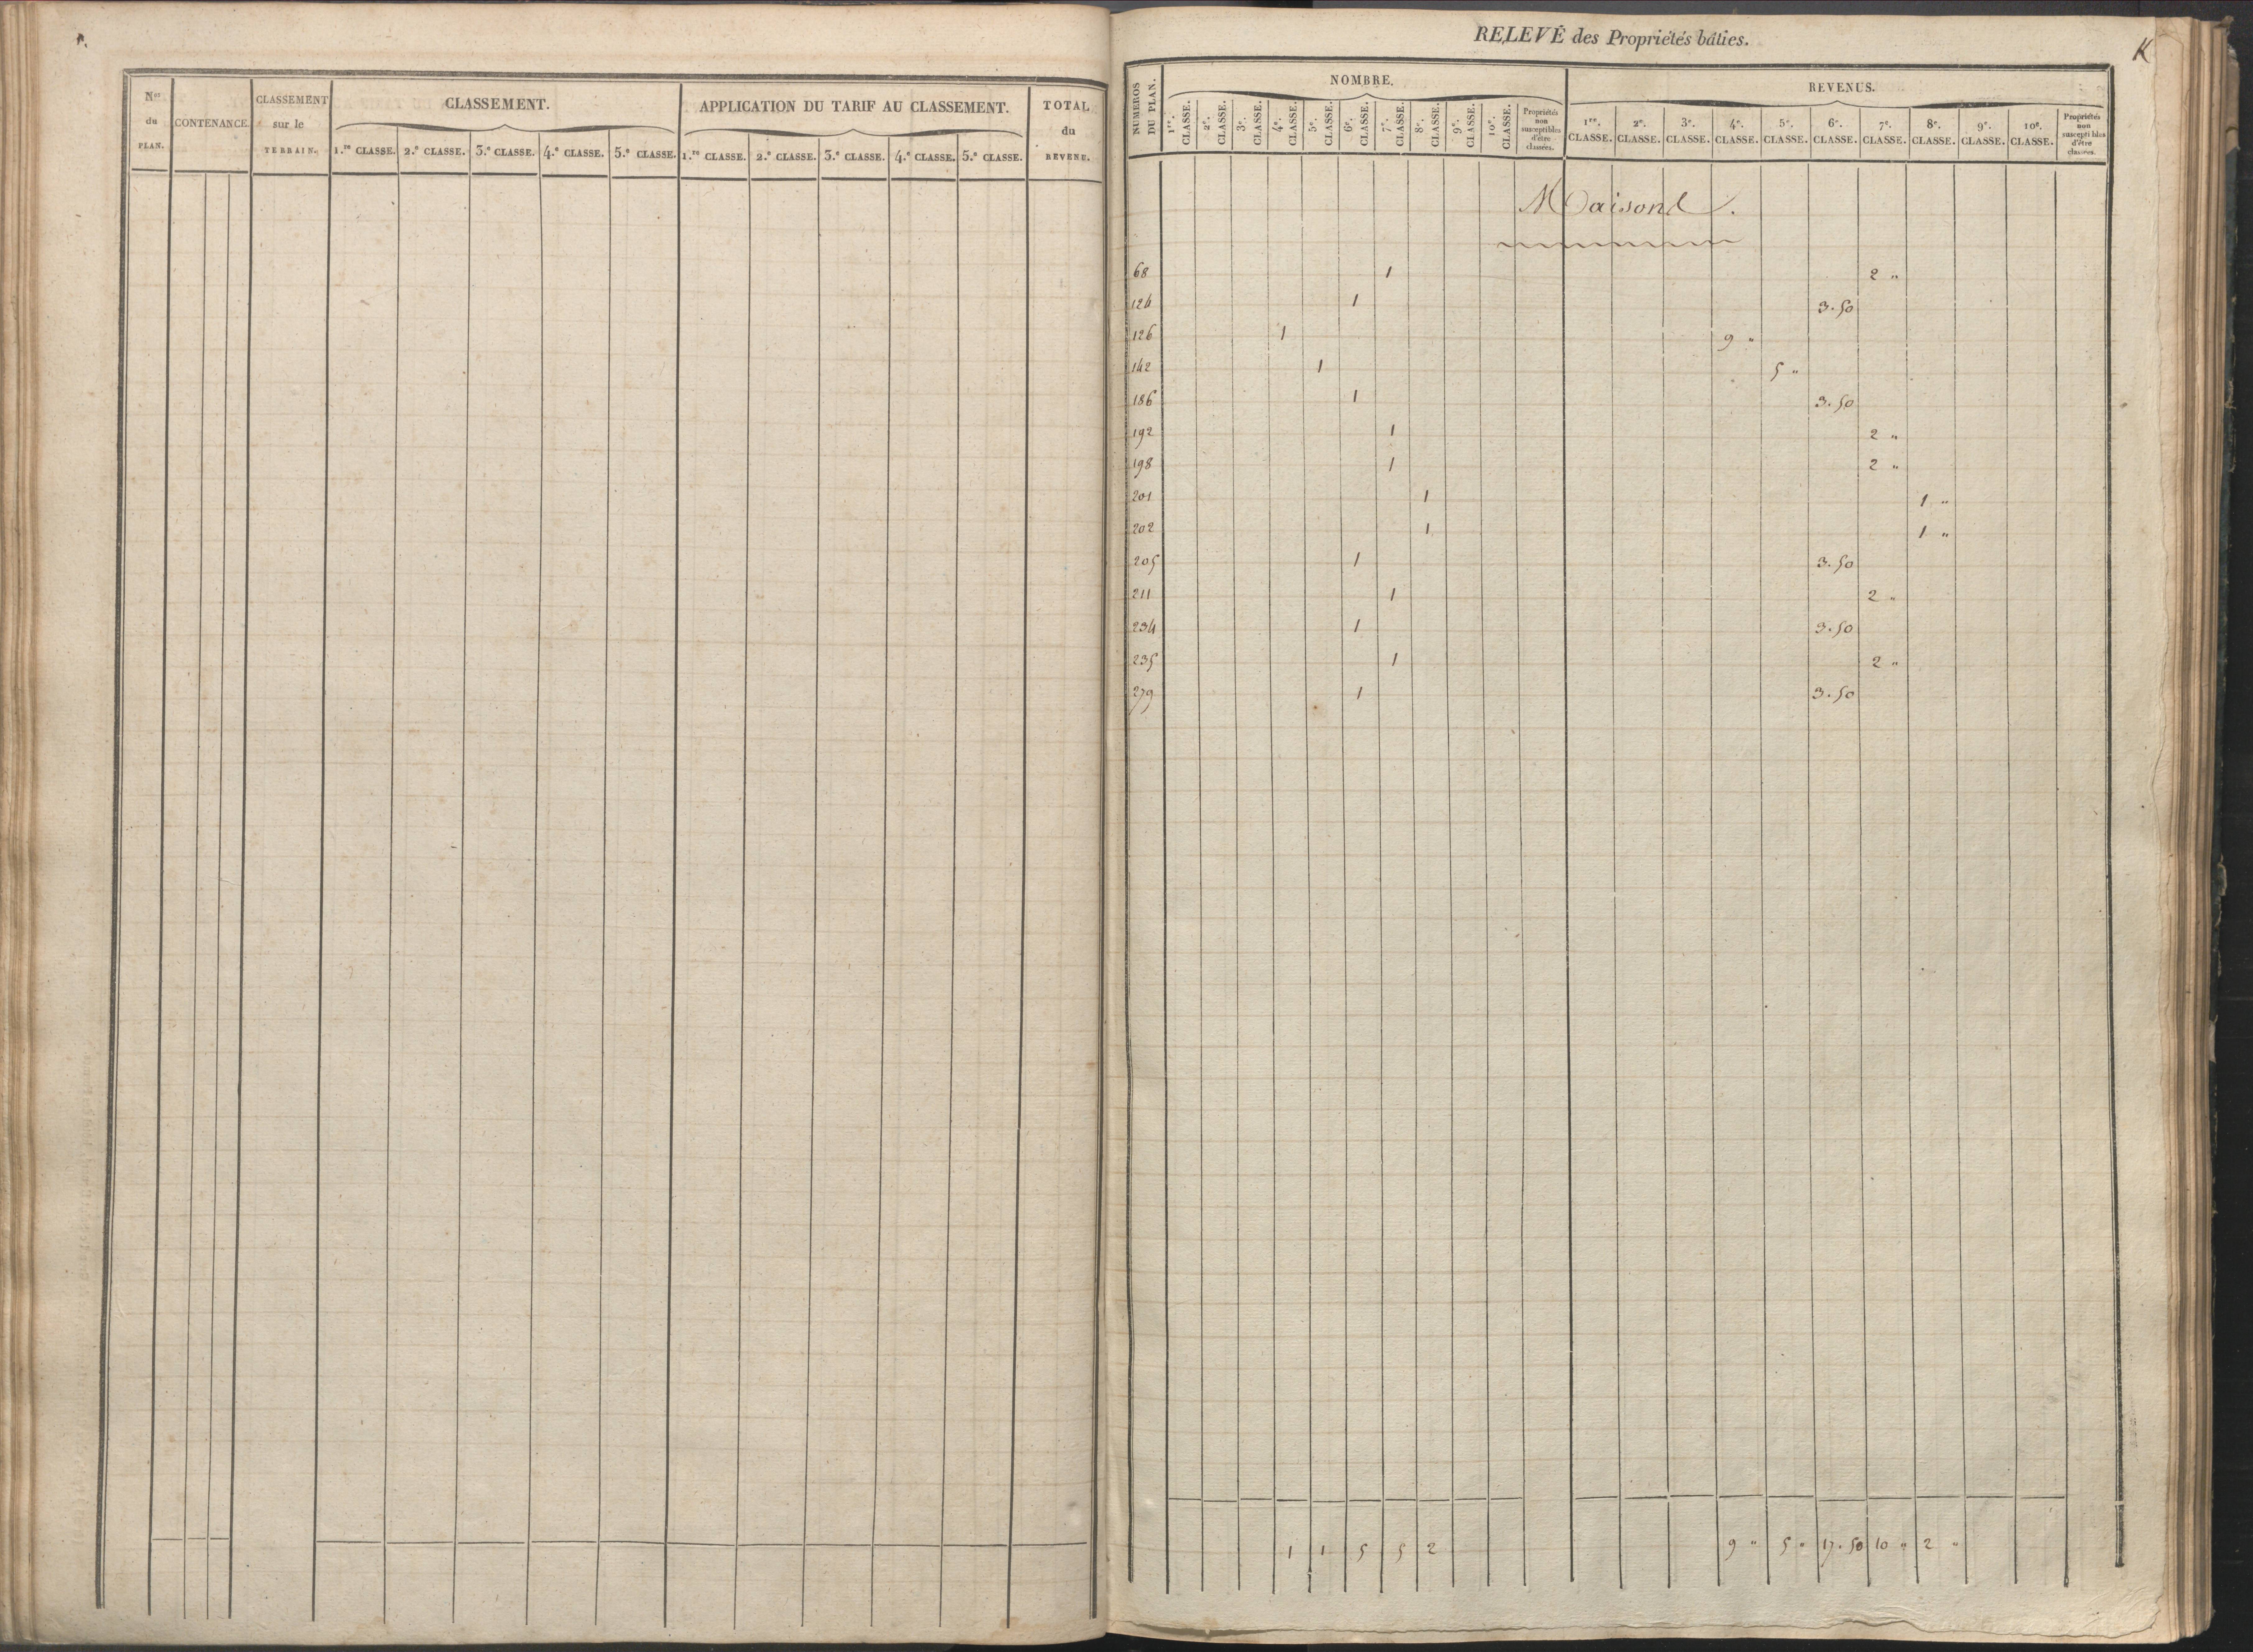 Nos du PLAN. CONTENANCE. CLASSEMENT sur le TERRAIN. CLASSEMENT. APPLICATION DU TARIF AU CLASSEMENT. TOTAL du REVENU.
1.re CLASSE. 2.e CLASSE. 3.e CLASSE. 4.e CLASSE. 5.e CLASSE. 1.re CLASSE. 2.e CLASSE. 3.e CLASSE. 4.e CLASSE. 5.e CLASSE.
RELEVÉ des Propriétés bâties.
K
NUMEROS DU PLAN. NOMBRE. REVENUS.
1re. CLASSE. 2e. CLASSE. 3e. CLASSE. 4e. CLASSE. 5e. CLASSE. 6e. CLASSE. 7e. CLASSE. 8e. CLASSE. 9e. CLASSE. 10e. CLASSE. Propriétés non susceptibles d'être classées. 1re. CLASSE. 2e. CLASSE. 3e. CLASSE. 4e. CLASSE. 5e. CLASSE. 6e. CLASSE. 7e. CLASSE. 8e. CLASSE. 9e. CLASSE. 10e. CLASSE. Propriétés non susceptibles d'être classées.
Maisons.
68 1 2 "
124 1 3.50
126 1 9 "
142 1 5 "
186 1 3.50
192 1 2 "
198 1 2 "
201 1 1 "
202 1 1 "
205 1 3.50
211 1 2 "
234 1 3.50
235 1 2 "
279 1 3.50
1 1 5 5 2 9 " 5 " 17.50 10 " 2 "